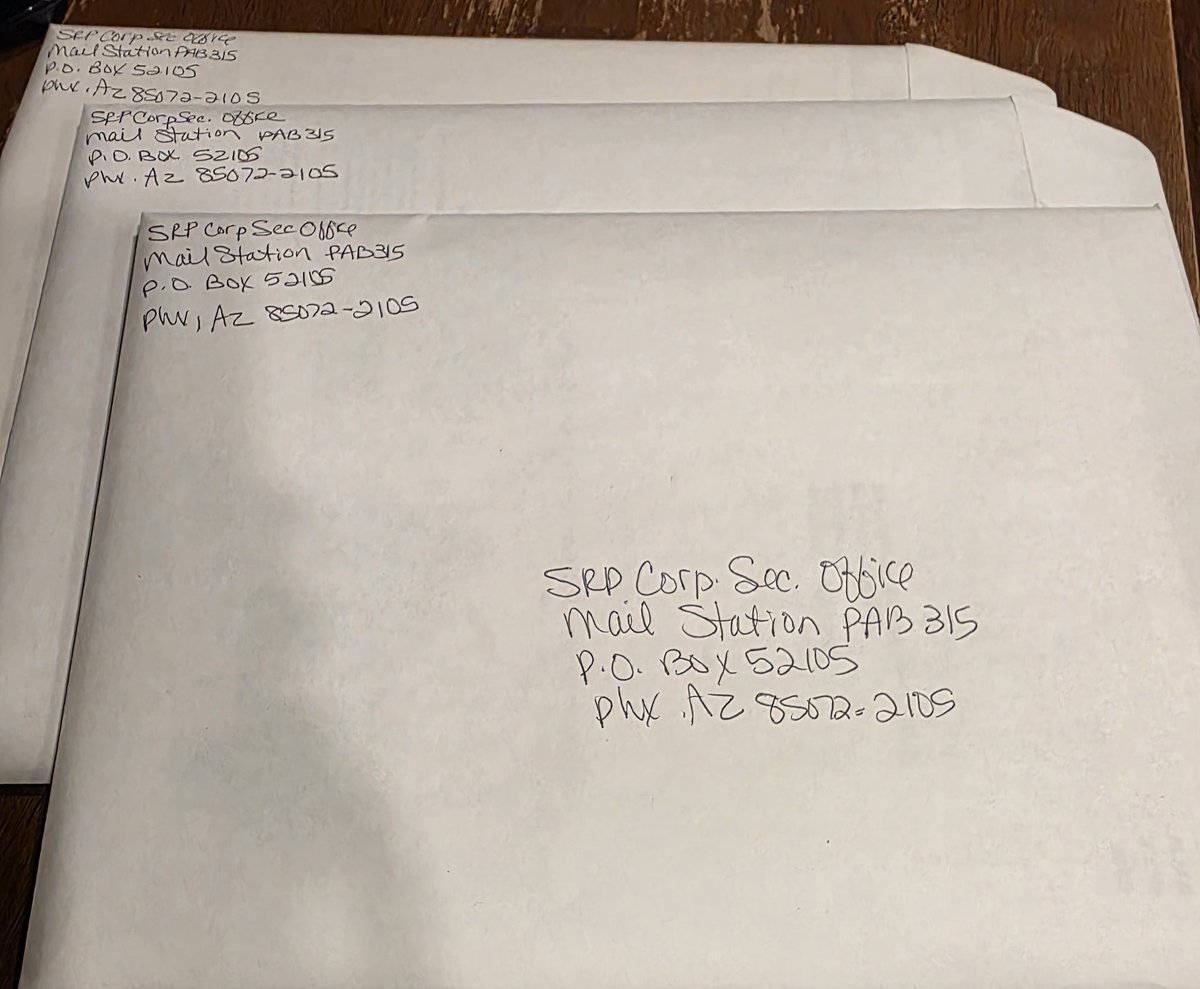 SRP Corp Sec Office
Mail Station PAB315
P.O. Box 52105
phx, Az 85072-2105
SRP Corp Sec. Office
Mail Station PAB 315
P.O. Box 52105
phx. Az 85072-2105
SRP Corp Sec Office
Mail Station PAB315
P.O. Box 52105
phx, Az 85072-2105
SRP Corp. Sec. Office
Mail Station PAB 315
P.O. Box 52105
phx, Az 85072-2105